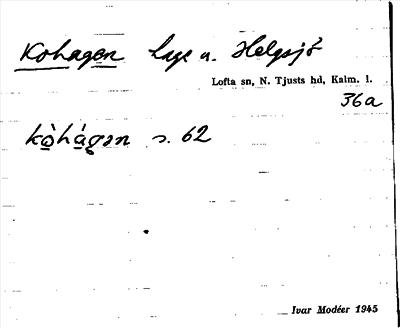 Kohagen hage u. Helgsjö
Lofta sn, N. Tjusts hd, Kalm. l.
36a
kò̱há̱gən s. 62
Ivar Modéer 1945